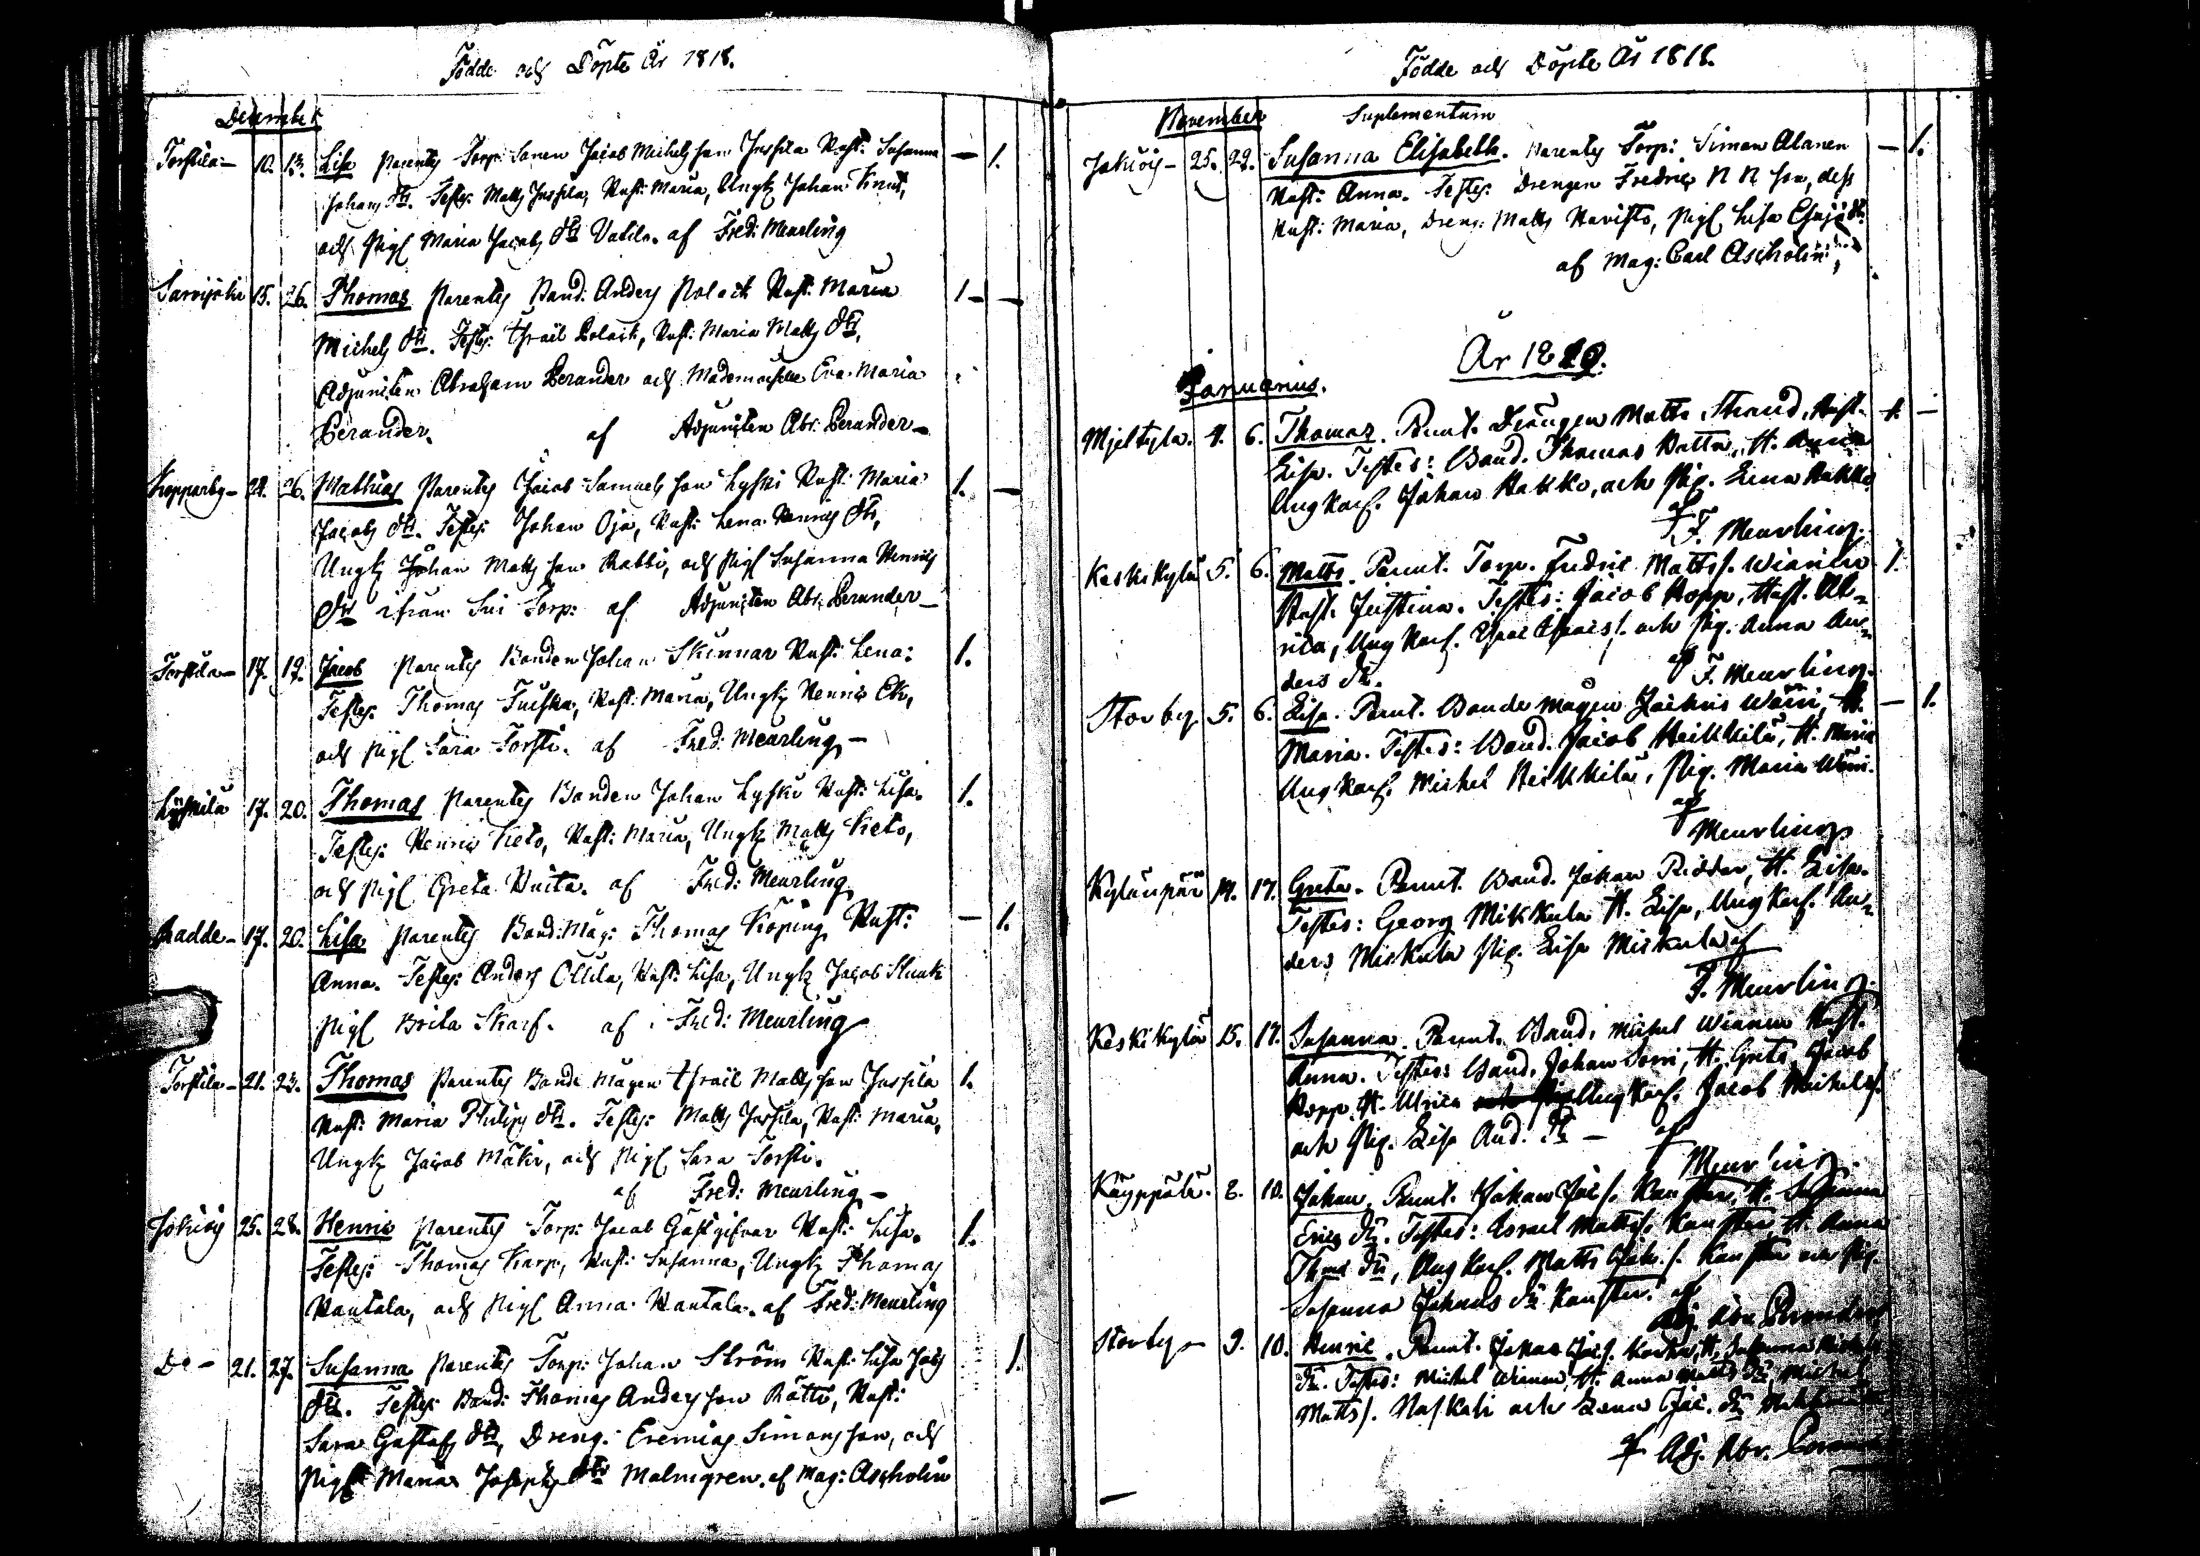 Födde och Döpte År 1818.
December
Torstila — 10. 13. Lisa Parentes Torp: Sonen Jacob Michelsson Jussila Hust: Susanna — 1.
Johans dtr. Testes: Matts Jussila, Hust: Maria, Ungk Johan Knut,
och Pig Maria Jacobs dtr Uotila. af Fred: Meurling
Sarvijoki 15. 26. Thomas Parentes Bond: Anders Polack Hust: Maria 1 — —
Michels dtr. Testes: Israel Polack, Hust: Maria Matts dtr,
Adjuncten Abraham Perander och Mademoiselle Eva Maria
Perander. af Adjuncten Abr: Perander —
Kopparby — 24. 26. Mathias Parentes Jacob Samuelsson Lyski Hust: Maria 1. —
Jacobs dtr. Testes: Johan Oja, Hust: Lena Henrics dtr,
Ungk Johan Mattsson Rabbi, och Pig Susanna Henrics
dtr ifrån Torp: af Adjuncten Abr: Perander —
Torstila — 17. 19. Jacob Parentes Bonden Johan Skinnar Hust: Lena: 1.
Testes: Thomas Hust: Maria, Ungk Henric Ek,
och Pig Sara Torsti. af Fred: Meurling —
Lyskilä 17. 20. Thomas Parentes Bonden Johan Lyski Hust: Lisa. 1.
Testes: Henric Keto, Hust: Maria, Ungk Matts Keto,
och Pig Greta af Fred: Meurling
Radde — 17. 20. Lisa Parentes Bond: Måg: Thomas Köping Hust: — 1.
Anna. Testes: Anders Ollila, Hust: Lisa, Ungk Jacob
Pig Brita Skarf. af Fred: Meurling
Torstila — 21. 23. Thomas Parentes Bonde Mågen Israel Mattsson Jussila 1.
Hust: Maria Philips dtr. Testes: Matts Jussila, Hust: Maria,
Ungk Jacob Mäki, och Pig Sara Torsti.
af Fred: Meurling —
Jokiois 25. 28. Henric Parentes Torp: Jacob Gästgifvar Hust: Lisa. 1.
Testes: Thomas Karp, Hust: Susanna, Ungk Thomas
Hantala, och Pig Anna Hantala. af Fred: Meurling
Do — 21. 27. Susanna Parentes Torp: Johan Ström Hust: Lisa Jacobs 1.
dtr. Testes: Bond: Thomas Andersson Rätti, Hust:
Sara Gustafs dtr, Dreng: Eremias Simonsson, och
Pig Maria Josephs dtr Malmgren. af Mag: Ascholin
Födde och Döpte År 1818.
November Suplementum
Jokiois — 25. 29. Susanna Elisabeth. Parentes Torp: Simon Alanen — 1.
Hust: Anna. Testes: Drengen Fredric N N son, dess
Hust: Maria, Dreng: Matts Havisto, Pig Lisa Esajæ dr.
af Mag: Carl Ascholin
År 1819.
Januarius.
Mjeltyla. 4. 6. Thomas. Parent. Drängen Matts Strand, Hust. 1. —
Lisa. Testes: Bond. Thomas H. Anna
Ungkarl. Johan Hakko, och Pig. Lena Hakko
af F. Meurling.
Keskikylä 5. 6. Matts. Parent. Torp. Fredric Mattss. 1.
Hust. Justina. Testes: Jacob Kopp, Hust. Ul-
rica, Ungkarl. Isac Isacss. och Pig. Anna An-
ders dr. af F. Meurling.
Storby 5. 6. Lisa. Parent. Bonde mågen H. — 1.
Maria. Testes: Bond. Jacob Heikkilä, H. Maria
Ungkarl. Michel Heikkilä, Pig. Maria
af Meurling
Kylänpää 14. 17. Greta. Parent. Bond. Johan Riddar, H. Lisa.
Testes: Georg Mikkula H. Lisa, Ungkarl. An-
ders Mickula Pig. Lisa Mickula af
F. Meurling.
Keskikylä 15. 17. Susanna. Parent. Bond. Michel Wianen Hust.
Anna. Testes: Bond. Johan H. Greta, Jacob
Kopp, H. Ulrica Ungkarl. Jacob Michelss.
och Pig. Lisa And. dr — af
Meurling.
Käyppälä. 8. 10. Johan. Parent. Johan Jacs. H. Susanna
Erics dr. Testes: Israel Mattss. H. Anna
Thms dr, Ungkarl. Matts och Pig.
Susanna Johans dr af
Adj. Abr. Perander
Storby — 9. 10. Henric. Parent. Johan Jacs. H. Susanna Michels
dr. Testes: Michel Wianen, H. Anna Matts dr, Michel
Mattss. Naskali och Lena Jac. dr
af Adj. Abr. Perander